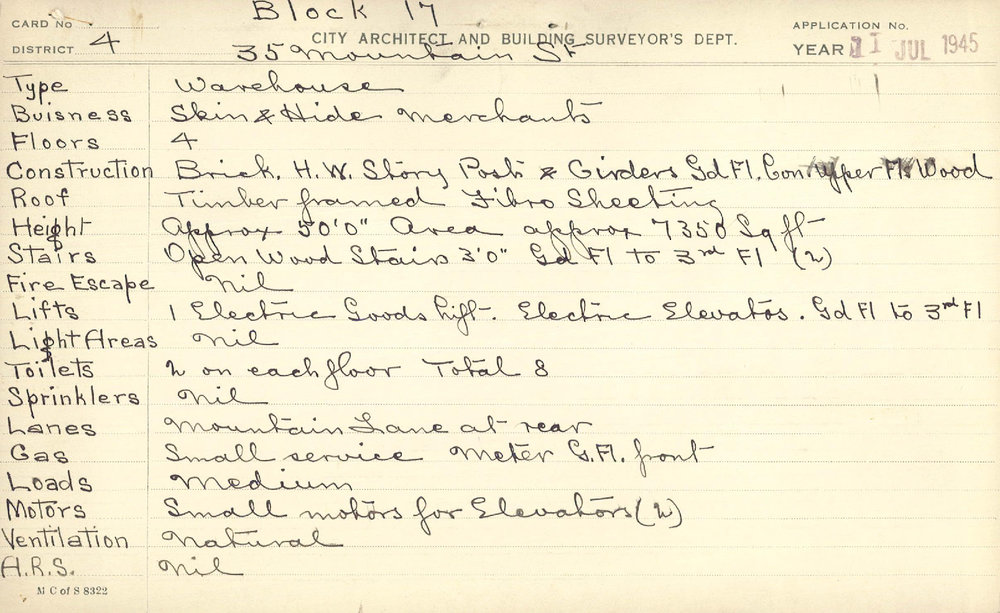 Block 17
CARD No
CITY ARCHITECT AND BUILDING SURVEYOR'S DEPT.
APPLICATION No.
DISTRICT 4
35 Mountain St
YEAR 11 JUL 1945
Type Warehouse
Buisness Skin & Hide Merchants
Floors 4
Construction Brick. H.W. Story Posts & Girders Gd Fl. Con. Upper Fl. Wood
Roof Timber framed Fibro Sheeting
Height Approx 50'0" Area approx 7350 Sq ft
Stairs Open Wood Stairs 3'0" Gd Fl to 3rd Fl (2)
Fire Escape Nil
Lifts 1 Electric Goods Lift. Electric Elevators. Gd Fl to 3rd Fl
Light Areas Nil
Toilets 2 on each floor Total 8
Sprinklers Nil
Lanes Mountain Lane at rear
Gas Small service Meter G.Fl. front
Loads Medium
Motors Small motors for Elevators (2)
Ventilation Natural
A.R.S. Nil
M C of S 8322